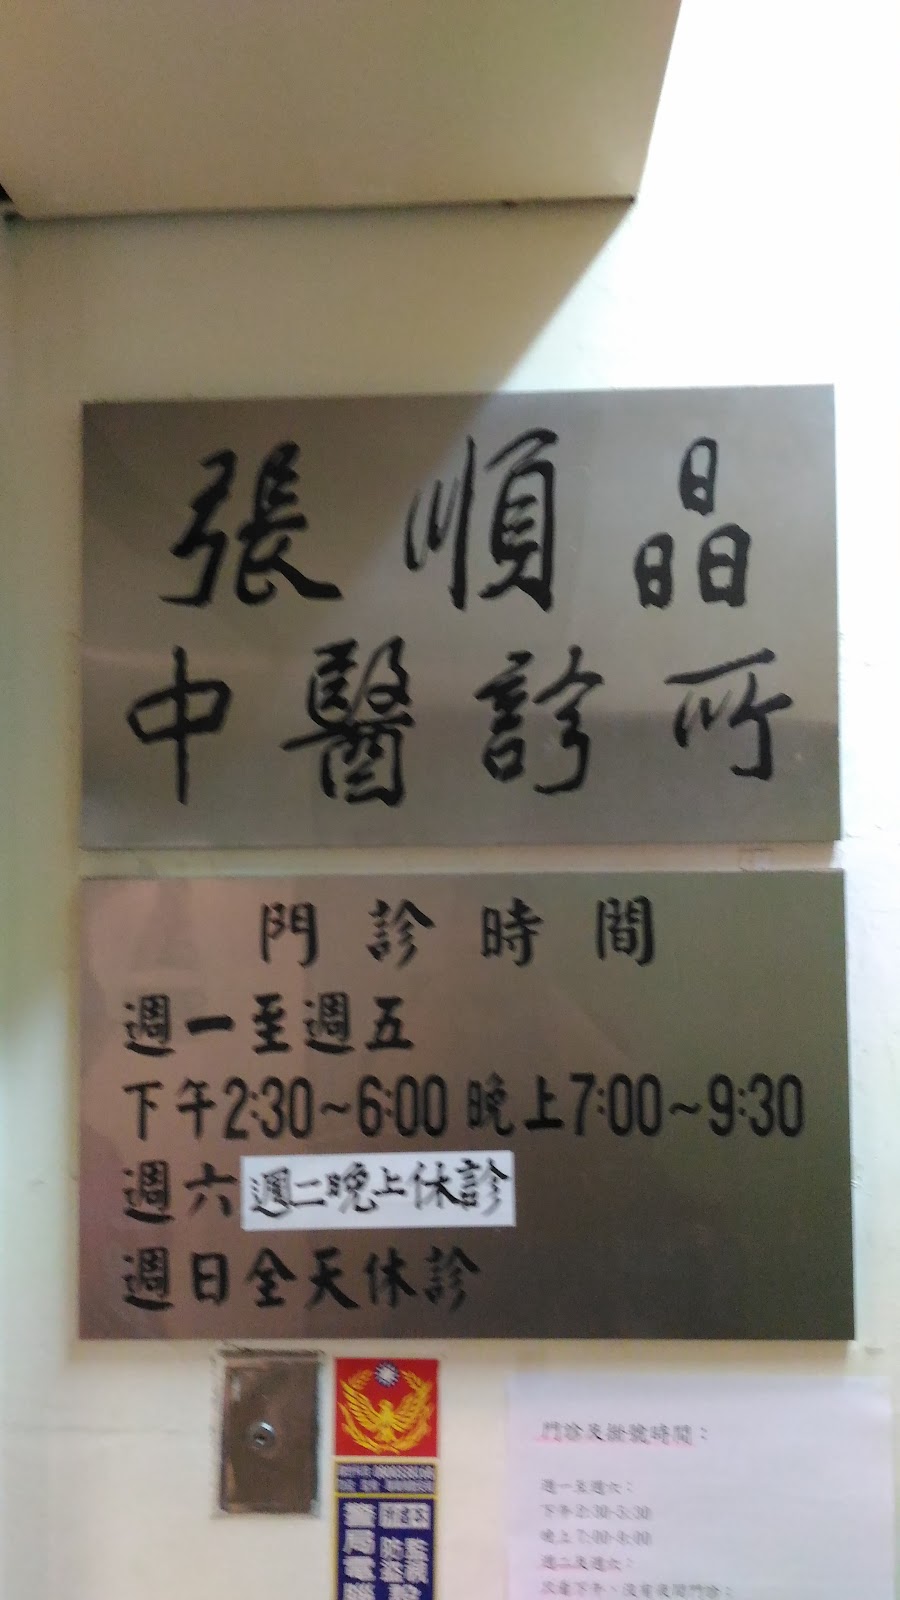 張順晶
中醫診所
門診時間
週一至週五
下午2:30~6:00 晚上7:00~9:30
週六 週二晚上休診
週日全天休診
門診及掛號時間：
週一至週六：
下午2:30-5:30
晚上7:00-8:00
週二及週六：
警局電
監視
防盜